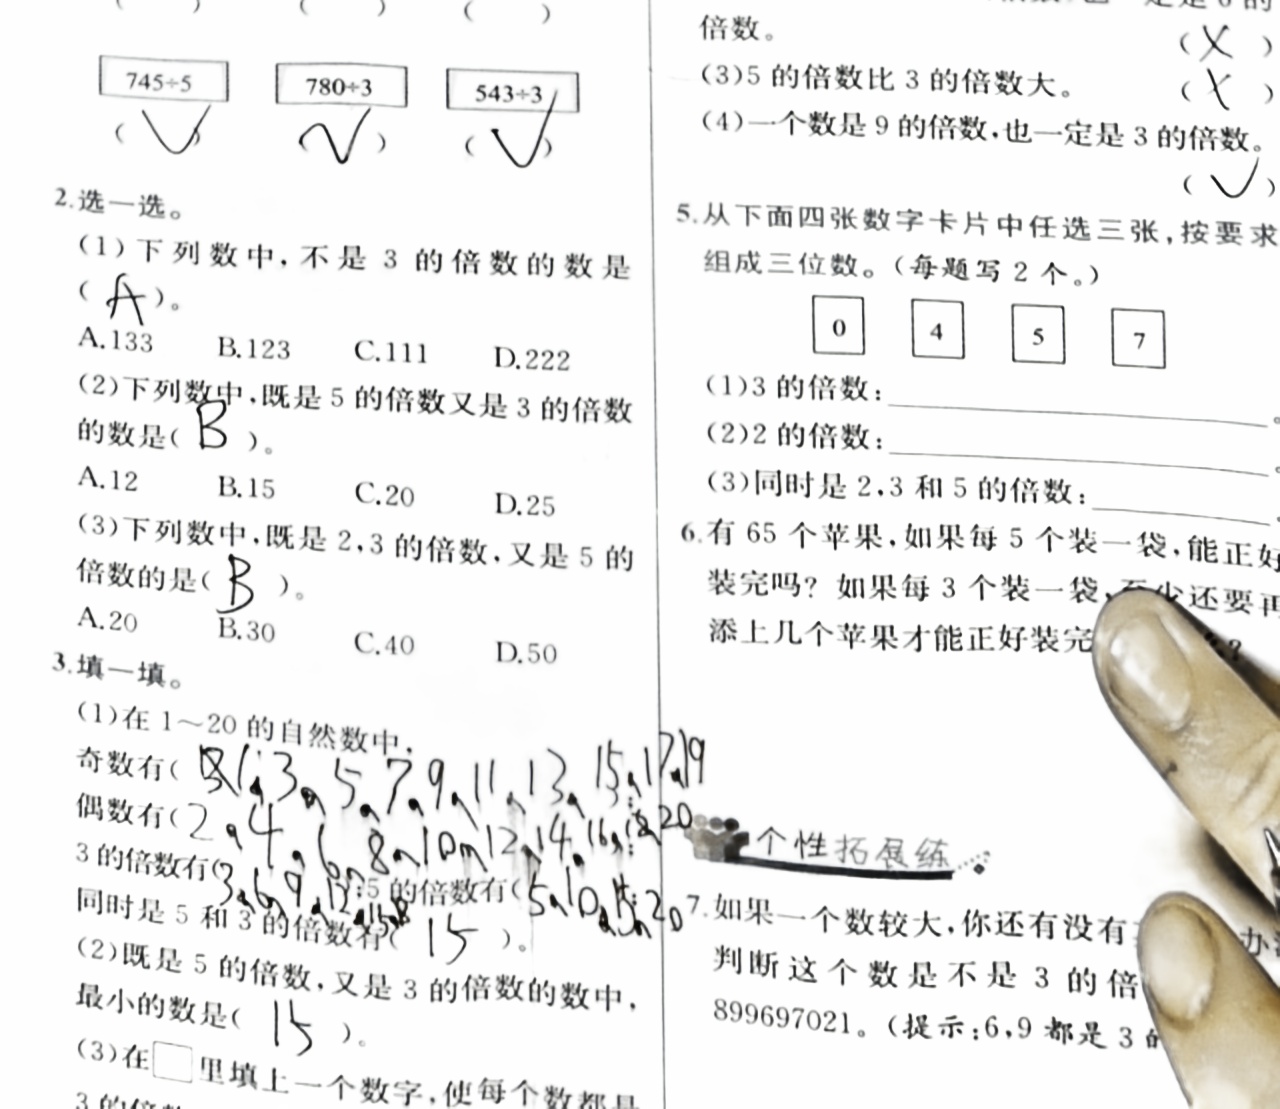 (    )  (    )  (    )
745÷5  780÷3  543÷3
( √ )  ( √ )  ( √ )
2.选一选。
(1)下列数中,不是3的倍数的数是
( A )。
A.133  B.123  C.111  D.222
(2)下列数中,既是5的倍数又是3的倍数
的数是( B )。
A.12  B.15  C.20  D.25
(3)下列数中,既是2,3的倍数,又是5的
倍数的是( B )。
A.20  B.30  C.40  D.50
3.填一填。
(1)在1~20的自然数中,
奇数有( 1,3,5,7,9,11,13,15,17,19
偶数有(2,4,6,8,10,12,14,16,18,20
3的倍数有(3,6,9,12,15,18 5的倍数有(5,10,15,20
同时是5和3的倍数有( 15 )。
(2)既是5的倍数,又是3的倍数的数中,
最小的数是( 15 )。
(3)在□里填上一个数字,使每个数都是
3的倍数
倍数。 ( X )
(3)5的倍数比3的倍数大。 ( X )
(4)一个数是9的倍数,也一定是3的倍数。
( √ )
5.从下面四张数字卡片中任选三张,按要求
组成三位数。(每题写2个。)
0  4  5  7
(1)3的倍数:
(2)2的倍数:
(3)同时是2,3和5的倍数:
6.有65个苹果,如果每5个装一袋,能正好
装完吗? 如果每3个装一袋,至少还要再
添上几个苹果才能正好装完
个性拓展练
7.如果一个数较大,你还有没有 办
判断这个数是不是3的倍
899697021。(提示:6,9都是3